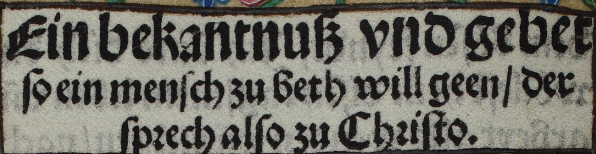 Ein bekantnuß vnd gebet
so ein mensch zu Beth will geen / der
sprech also zu Christo.